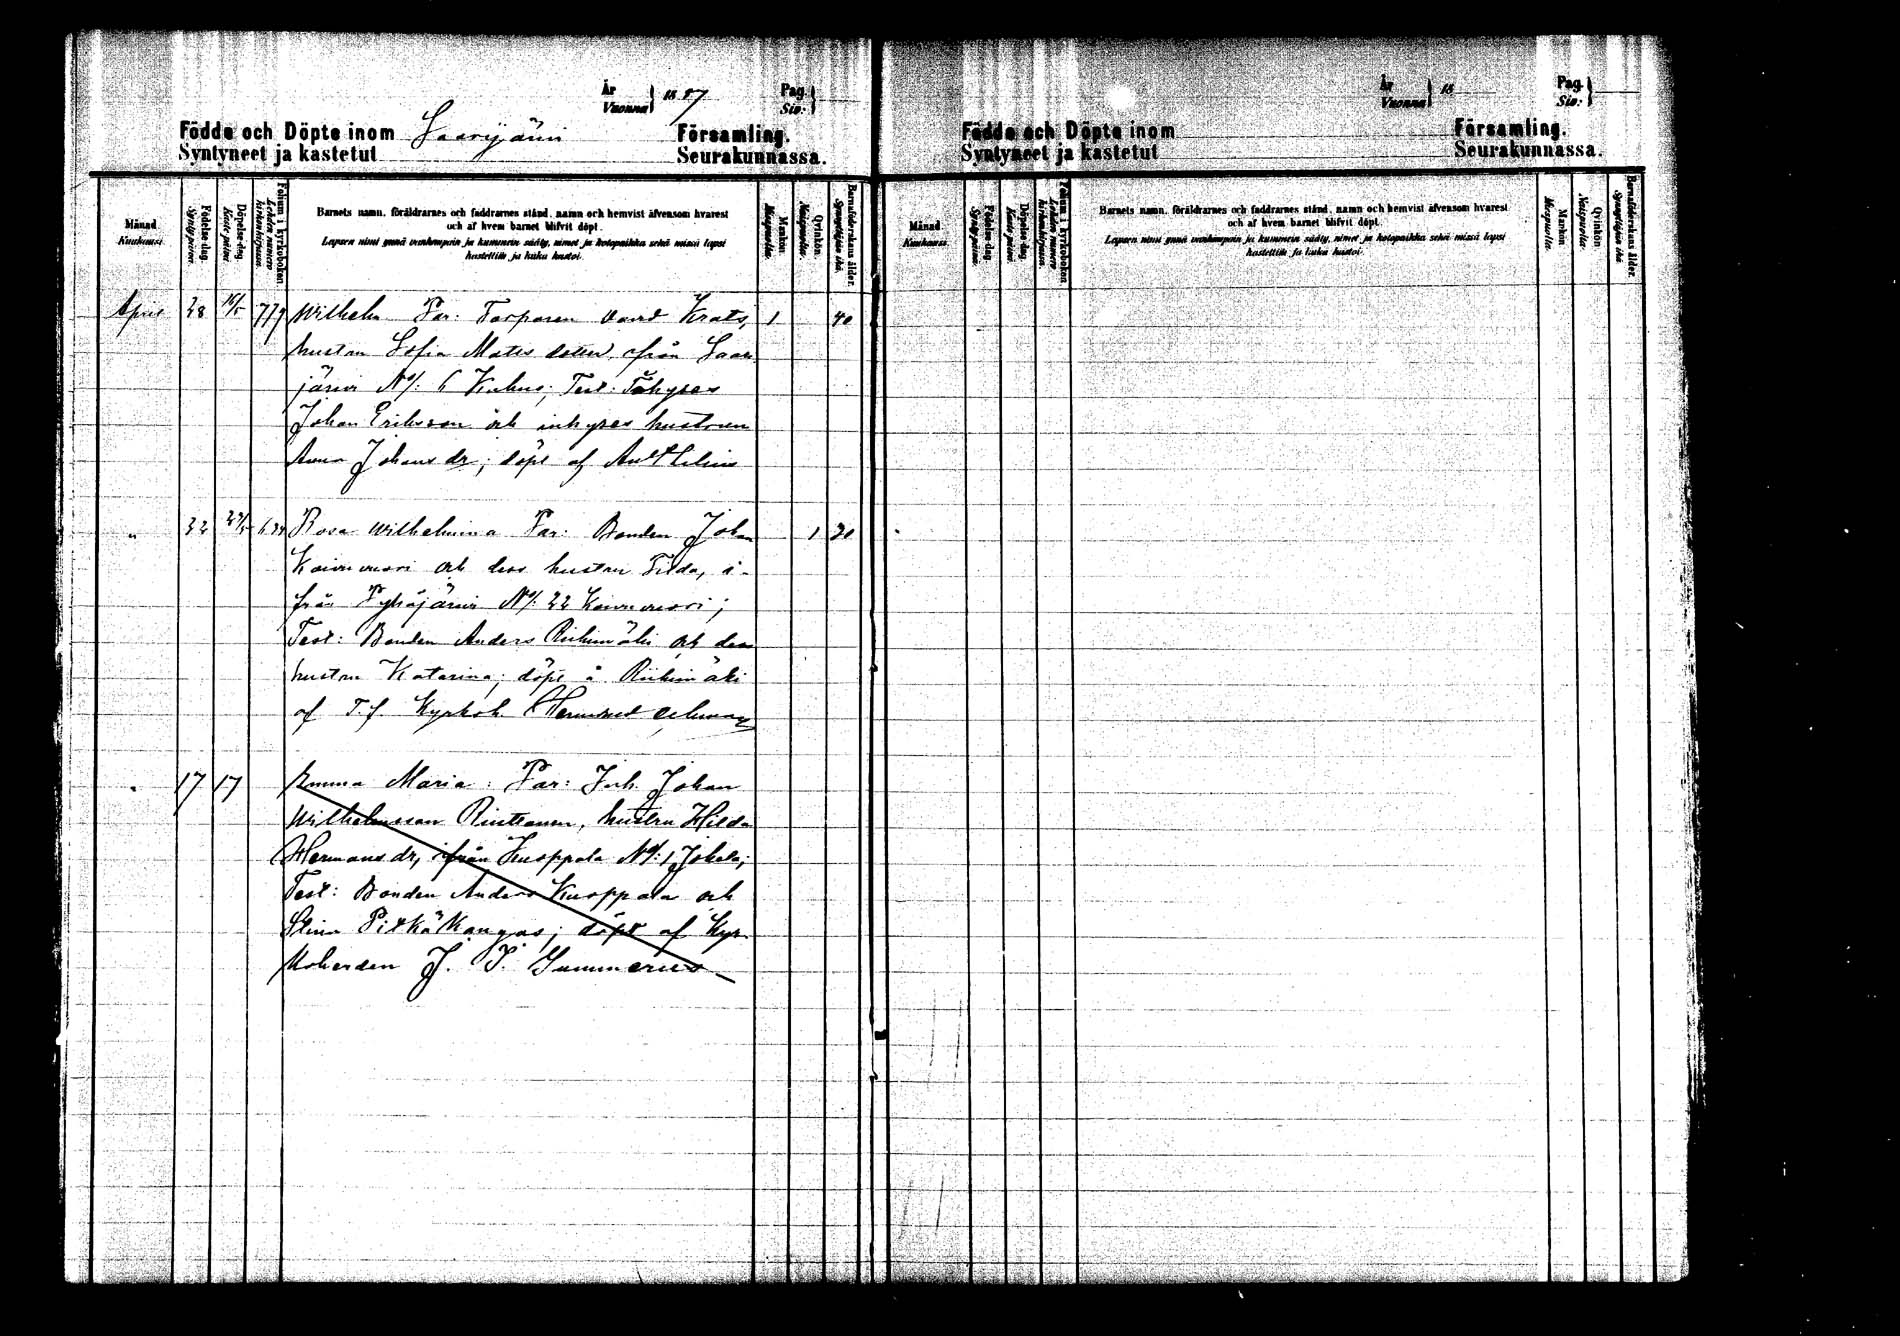 År
Vuonna
1887
Pag.
Siv:
Födde och Döpte inom Saarijärvi Församling.
Syntyneet ja kastetut Seurakunnassa.
Månad
Kuukausi.
Födelse-dag.
Syntypäivä.
Döpelse-dag
Kaste-päivä
Folium i kyrkoboken
Lehden numero kirkonkirjassa.
Barnets namn, föräldrarnes och faddrarnes stånd, namn och hemvist äfvensom hvarest
och af hvem barnet blifvit döpt.
Lapsen nimi ynnä vanhempain ja kummein sääty, nimet ja kotopaikka sekä missä lapsi
kastettiin ja kuka kastoi.
Mankön.
Miespuolia.
Qvinkön.
Naispuolia.
Barnaföderskans ålder.
Synnyttäjän ikä
April 28 16/5 779 Wilhelm Far: Torparen David Krats, 1 40
hustru Sofia Mats doter, ifrån Saari
järvi No/: 6 Kukus; Test: Inhyses
Johan Eriksson och inhyses hustrun
Anna Johans dr; döpt af
" 22 6 Rosa Wilhelmina Far: Bonden Johan 1 20
och dess hustru Tilda, i-
från Pyhäjärvi No/: 22
Test: Bonden Anders Riihimäki och dess
hustru Katarina; döpt å Riihimäki
af T.f. Kyrkoh.
" 17 17 Emma Maria: Far: Inh. Johan
Wilhelmsson Rintanen, hustru Hilda
Hermans dr, ifrån Kuoppala No/: 1 Jokela;
Test: Bonden Anders Kuoppala och
Stina Pitkäkangas; döpt af Kyr-
koherden J. J. Gummerus
År
Vuonna
18
Pag.
Siv:
Födde och Döpte inom Församling.
Syntyneet ja kastetut Seurakunnassa.
Månad
Kuukausi.
Födelse-dag.
Syntypäivä.
Döpelse-dag
Kaste-päivä
Folium i kyrkoboken
Lehden numero kirkonkirjassa.
Barnets namn, föräldrarnes och faddrarnes stånd, namn och hemvist äfvensom hvarest
och af hvem barnet blifvit döpt.
Lapsen nimi ynnä vanhempain ja kummein sääty, nimet ja kotopaikka sekä missä lapsi
kastettiin ja kuka kastoi.
Mankön
Miespuolia.
Qvinkön.
Naispuolia.
Barnaföderskans ålder.
Synnyttäjän ikä